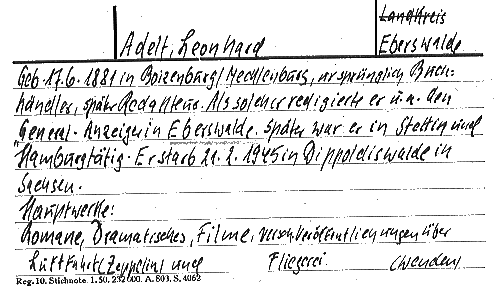 Landkreis
Adelt, Leonhard
Eberswalde
Geb. 17.6. 1881 in Boizenburg/Mecklenburg, ursprünglich Buch-
händler, später Redakteur. Als solcher redigierte er u.a. den
"General-Anzeiger in Eberswalde. Später war er in Stettin und
Hamburg tätig. Er starb 21.2.1945 in Dippoldiswalde in
Sachsen.
Hauptwerke:
Romane, Dramatisches, Filme, Veröffentlichungen über
Luftfahrt (Zeppelin) und Fliegerei.
Reg. 10. Stichnote. 1. 50. 232 000. A. 803. S. 4062